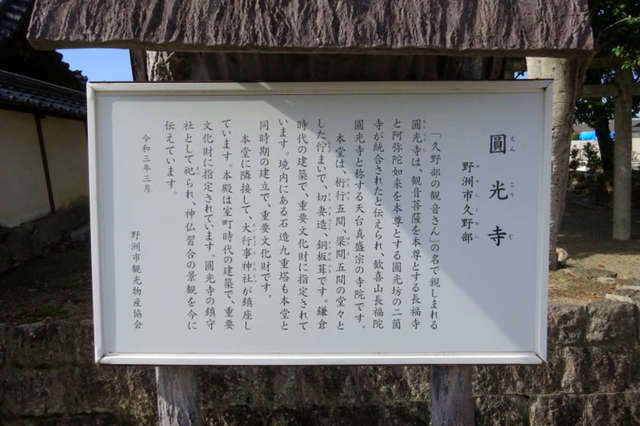 圓光寺
えん こう じ
野洲市久野部
「久野部の観音さん」の名で親しまれる
圓光寺は、観音菩薩を本尊とする長福寺
と阿弥陀如来を本尊とする圓光坊の二箇
寺が統合されたと伝えられ、歓喜山長福院
圓光寺と称する天台真盛宗の寺院です。
本堂は、桁行五間、梁間五間の堂々と
した佇まいで、切妻造、銅板葺です。鎌倉
時代の建築で、重要文化財に指定されて
います。境内にある石造九重塔も本堂と
同時期の建立で、重要文化財です。
本堂に隣接して、大行事神社が鎮座し
ています。本殿は室町時代の建築で、重要
文化財に指定されています。圓光寺の鎮守
社として祀られ、神仏習合の景観を今に
伝えています。
令和三年三月
野洲市観光物産協会